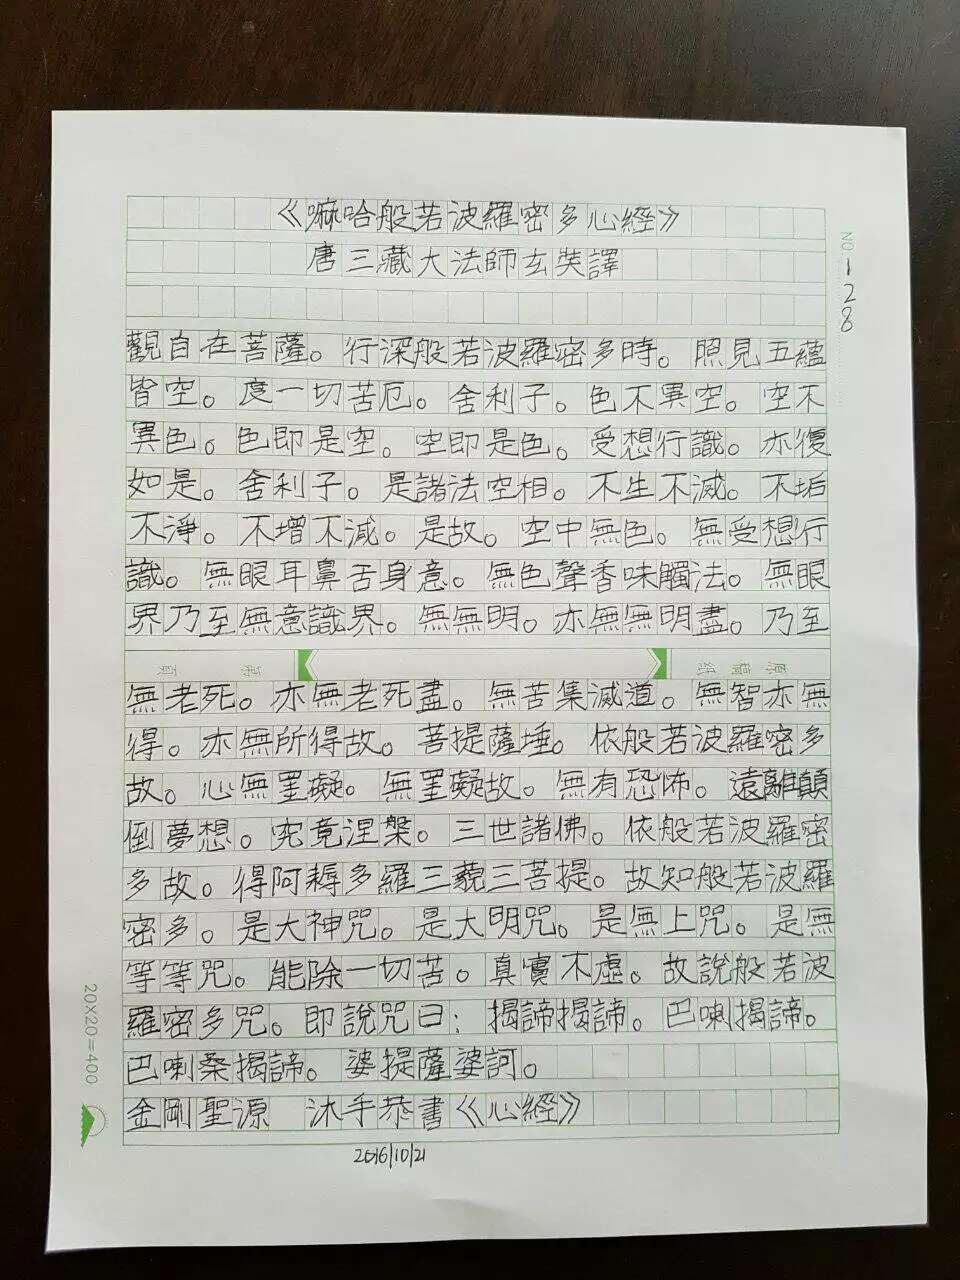 《嘛哈般若波羅密多心經》
唐三藏大法師玄奘譯
NO 128
觀自在菩薩。行深般若波羅密多時。照見五蘊
皆空。度一切苦厄。舍利子。色不異空。空不
異色。色即是空。空即是色。受想行識。亦復
如是。舍利子。是諸法空相。不生不滅。不垢
不淨。不增不減。是故。空中無色。無受想行
識。無眼耳鼻舌身意。無色聲香味觸法。無眼
界乃至無意識界。無無明。亦無無明盡。乃至
原稿紙 第 頁
無老死。亦無老死盡。無苦集滅道。無智亦無
得。亦無所得故。菩提薩埵。依般若波羅密多
故。心無罣礙。無罣礙故。無有恐怖。遠離顛
倒夢想。究竟涅槃。三世諸佛。依般若波羅密
多故。得阿耨多羅三藐三菩提。故知般若波羅
密多。是大神咒。是大明咒。是無上咒。是無
等等咒。能除一切苦。真實不虛。故說般若波
羅密多咒。即說咒曰：揭諦揭諦。巴喇揭諦。
巴喇桑揭諦。婆提薩婆訶。
金剛聖源 沐手恭書《心經》
2016/10/21
20X20=400